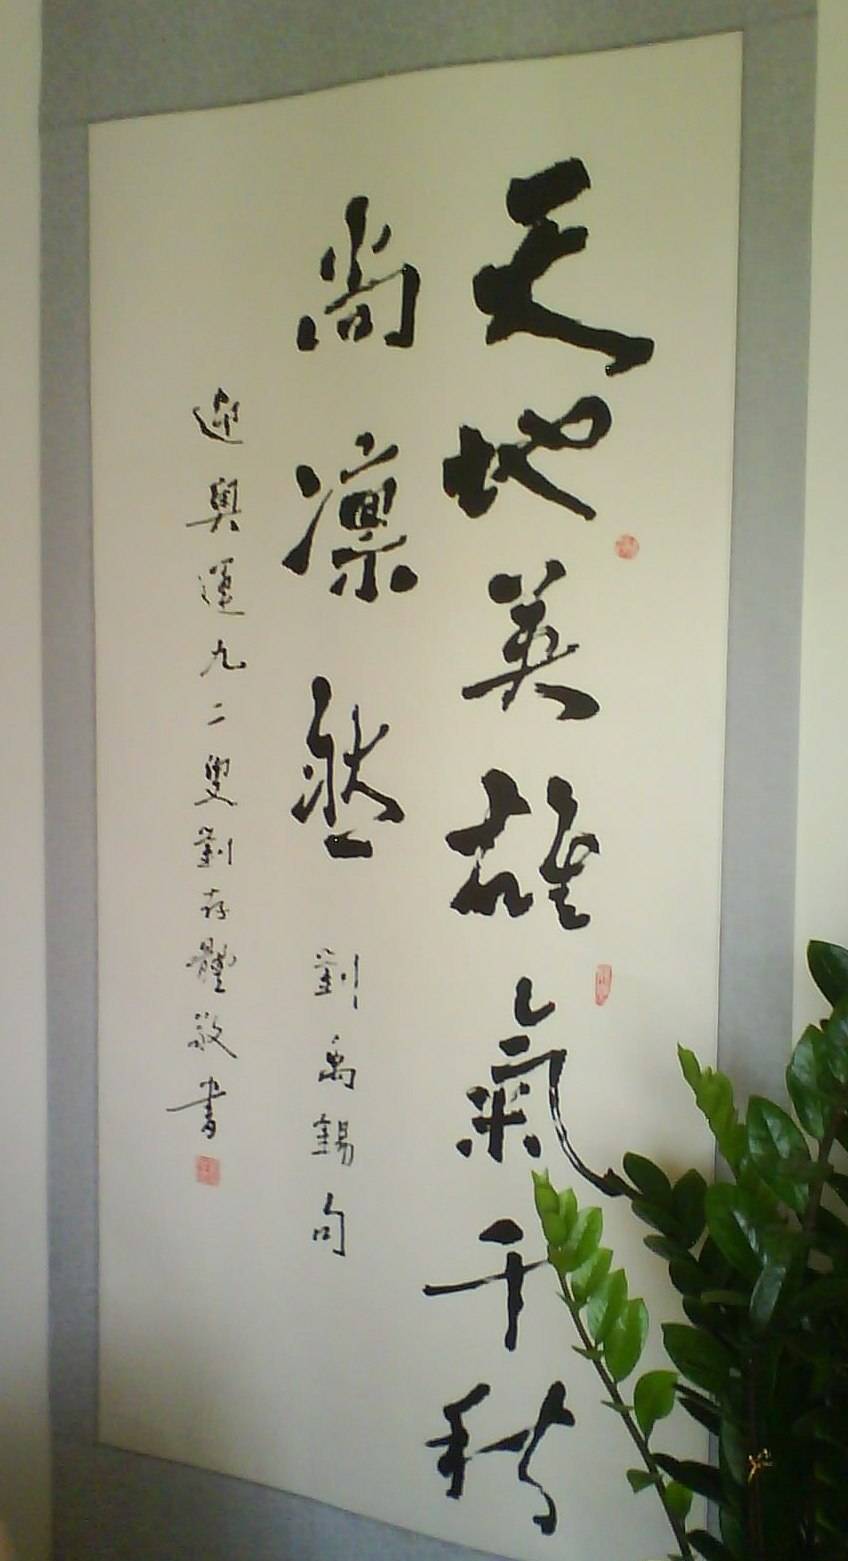 天地英雄氣千秋
尚凛然
劉禹錫句
迎奧運九二叟劉存體敬書